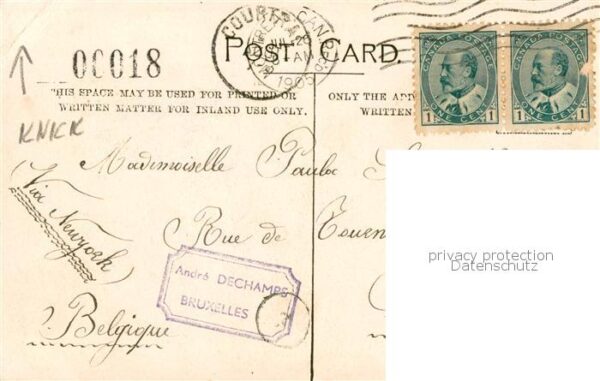 POST CARD.
00018
THIS SPACE MAY BE USED FOR PRINTED OR
WRITTEN MATTER FOR INLAND USE ONLY.
ONLY THE
WRITTEN
CANADA POSTAGE
1 ONE CENT 1
CANADA POSTAGE
1 ONE CENT 1
KNICK
Mademoiselle
Rue de
Via Newyork
Belgique
André DECHAMPS
BRUXELLES
privacy protection
Datenschutz